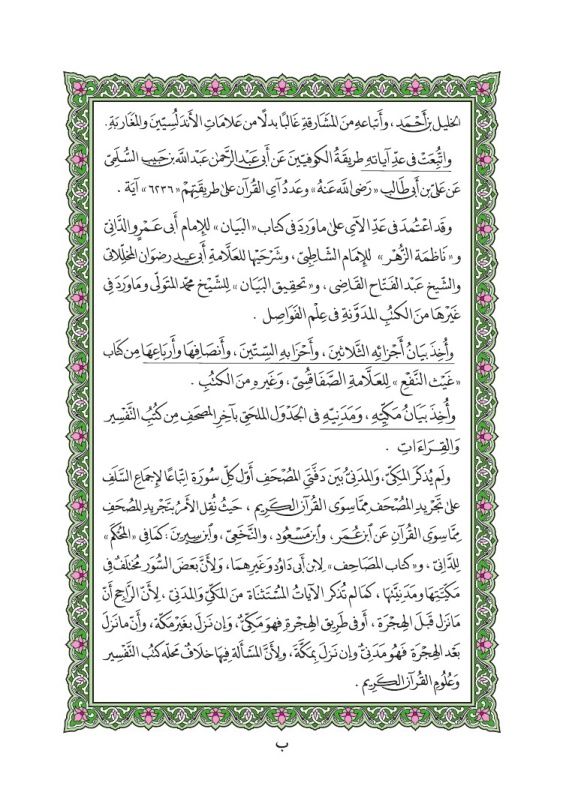 الخليل بن أَحْمَد، وأَتباعه من المشارقةِ غالبًا بدلًا من عَلاماتِ الأندلُسيّينَ والمغَاربَةِ.
واتُّبِعَتْ فى عدِّ آياتهِ طريقةُ الكوفيّينَ عَن أبى عَبد الرَّحمٰن عَبد الله بن حَبيب السُّلَمِىِّ
عَن عَلىِّ بن أبى طالبٍ «رَضِىَ الله عَنهُ» وعَددُ آىِ القرآن على طريقتِهِمْ «٦٢٣٦» آيَة.
وقد اعْتُمِدَ فى عَدِّ الآىِ على مَا وَرَدَ فى كتاب «البَيان» للإمام أبى عَمرٍو الدَّانِى
و«نَاظمَة الزُّهْر» للإمَام الشَّاطِبِىِّ، وشَرْحَيْهَا للعَلَّامَةِ أبى عيد رضوَان المخلِّلاتِى
والشَّيخ عَبد الفَتَّاح القَاضِى، و«تحقِيق البَيَان» للشَّيْخ محمد المتَولِّى ومَا وَرَدَ فى
غَيْرِهَا منَ الكتُبِ المدَوَّنةِ فى عِلْم الفَوَاصِل.
وأُخِذَ بيَانُ أَجْزَائِهِ الثَّلاثينَ، وأَحْزَابهِ السِّتّينَ، وأنصَافِهَا وأَربَاعِهَا مِن كتاب
«غَيْث النَّفْعِ» للعَلَّامةِ الصَّفَاقُسِىِّ، وغَيرِهِ منَ الكتُبِ.
وأُخِذَ بيَانُ مَكّيِّهِ، ومَدَنِيِّهِ فى الجَدْوَلِ الملحَقِ بآخِرِ المصحَفِ مِن كتُبِ التَّفْسِيرِ
وَالقِرَاءَاتِ.
ولَم يُذكَرِ المكِّىُّ، والمدَنىُّ بَيْنَ دَفَّتَىِ المُصْحَفِ أَوَّلَ كلِّ سُورَة اتِّبَاعًا لإجمَاعِ السَّلَفِ
على تَجْرِيدِ المُصْحَفِ مِمَّا سِوَى القُرْآنِ الكَرِيمِ، حَيْثُ نُقِلَ الأَمْرُ بتَجْرِيدِ المُصْحَفِ
مِمَّا سِوَى القُرآنِ عَنِ ابْنِ عُمَرَ، وابْنِ مَسْعُودٍ، والنَّخَعِىِّ، وابْنِ سِيرِينَ: كمَا فى «المُحْكَمِ»
للدَّانِىِّ، و«كتاب المَصَاحِفِ» لابنِ أبى دَاوُدَ وغَيرِهمَا، ولأَنَّ بَعضَ السُّوَرِ مُختَلَفٌ فى
مَكّيَّتِهَا ومَدَنِيَّتِهَا، كمَا لَم تُذكَرِ الآيَاتُ المُسْتَثنَاة مِنَ المكِّىِّ والمدَنىِّ، لأنَّ الرَّاجحَ أنَّ
مَا نزَلَ قَبْلَ الهِجْرَة، أَو فى طَرِيقِ الهِجْرَةِ فهوَ مَكّىٌّ، وإن نزَلَ بغَيْرِ مَكّةَ، وأَنَّ مَا نزَلَ
بَعْدَ الهِجْرَةِ فَهُوَ مَدَنىٌّ وإن نَزَلَ بمَكَّةَ، ولأَنَّ المَسْأَلةَ فِيهَا خلافٌ محلّه كتُبُ التَّفْسِيرِ
وَعُلُومِ القُرْآنِ الكَرِيمِ.
ب